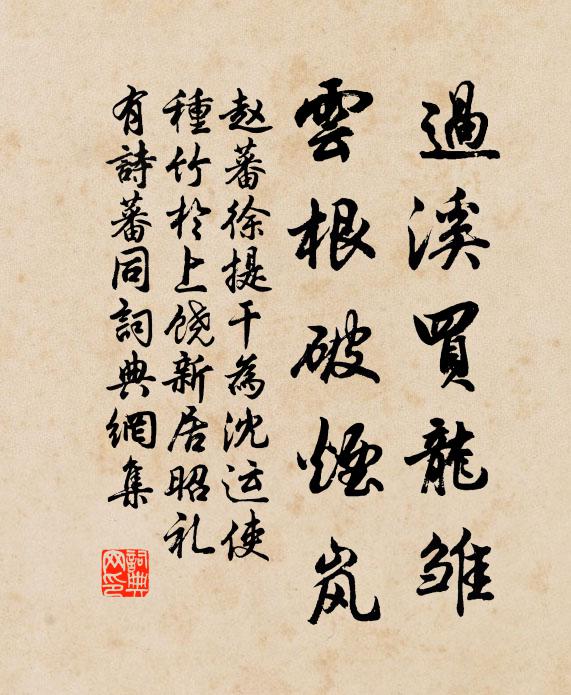 過溪買龍雛
雲根破煙岚
赵蕃徐提干為沈运使
種竹於上饶新居昭礼
有詩蕃同詞典網集
詞典网印